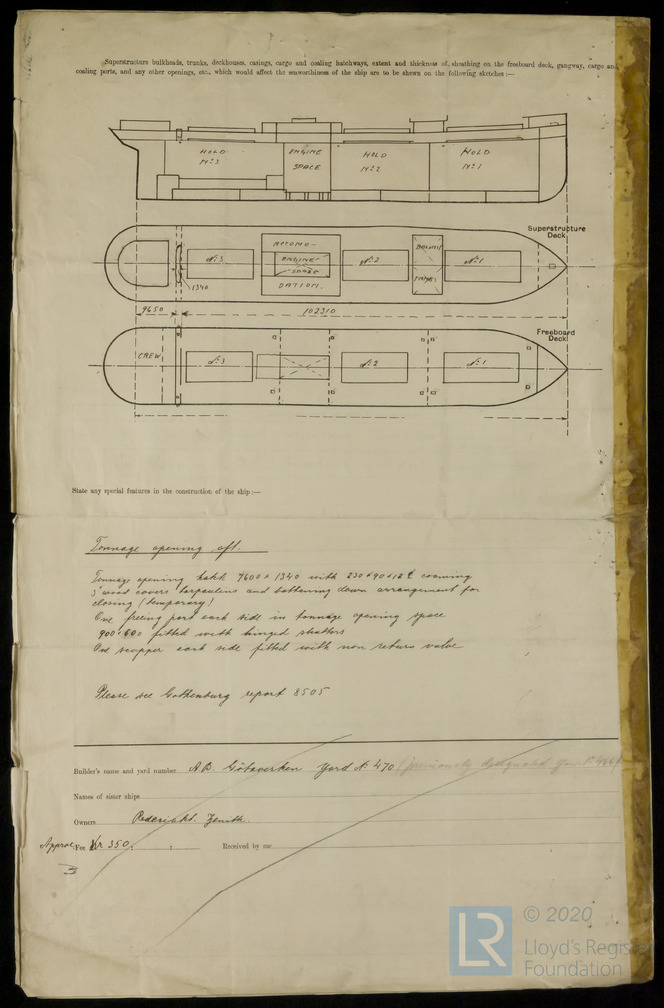 Superstructure bulkheads, trunks, deckhouses, casings, cargo and coaling hatchways, extent and thickness of sheathing on the freeboard deck, gangway, cargo and
coaling ports, and any other openings, etc., which would affect the seaworthiness of the ship are to be shewn on the following sketches:—
HOLD Nº3
ENGINE SPACE
HOLD Nº2
HOLD Nº1
Superstructure Deck
Nº3
ACCOMO-
ENGINE SPACE
DATION.
Nº2
Nº1
1340
9650
102310
Freeboard Deck
CREW
Nº3
Nº2
Nº1
State any special features in the construction of the ship:—
Tonnage opening aft.
Tonnage opening hatch 7600 x 1340 with 230 x 90 x 12 coaming
3" wood covers tarpaulins and battening down arrangement for
closing (temporary)
One freeing port each side in tonnage opening space
900 x 600 fitted with hinged shutters
One scupper each side fitted with non return valve
Please see Gothenburg report 8505
Builder's name and yard number A.B. Götaverken Yard Nº 470 (previously designated Yard Nº 466)
Names of sister ships
Owners Rederiakt. Zenith.
Approx. Fee Kr 350 : :
Received by me
LR
© 2020
Lloyd's Register
Foundation